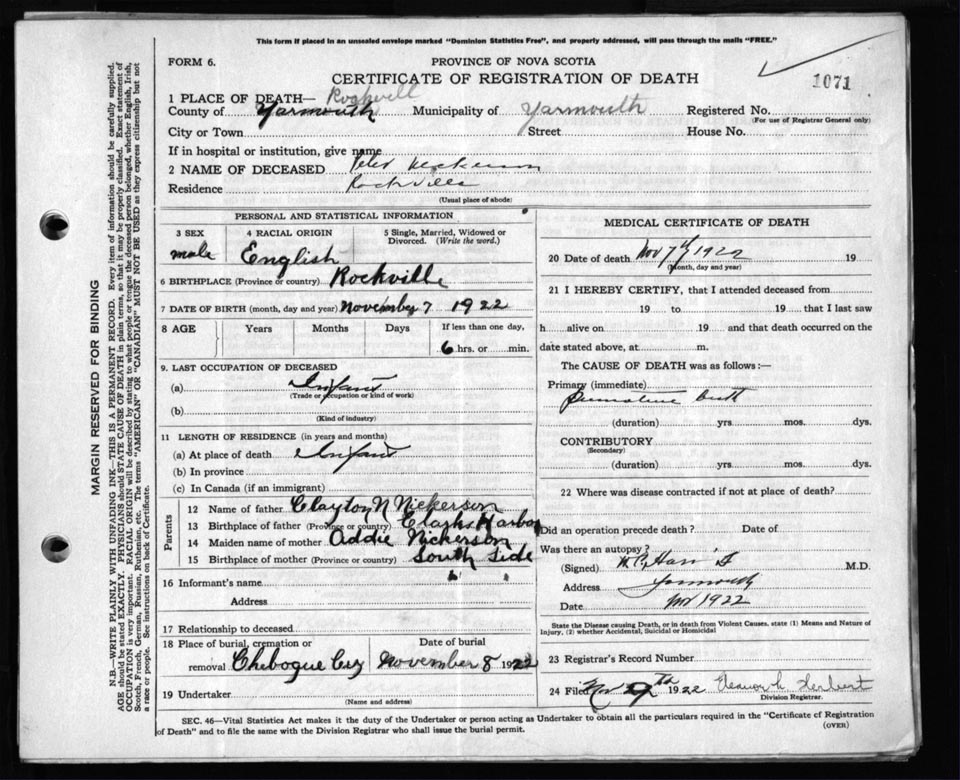 This form if placed in an unsealed envelope marked "Dominion Statistics Free", and properly addressed, will pass through the mails "FREE."
FORM 6.
PROVINCE OF NOVA SCOTIA
CERTIFICATE OF REGISTRATION OF DEATH
1071
1 PLACE OF DEATH— Rockvill
County of Yarmouth Municipality of Yarmouth Registered No.
(For use of Registrar General only)
City or Town Street House No.
If in hospital or institution, give name
2 NAME OF DECEASED Peter Nickerson
Residence Rockville
(Usual place of abode)
PERSONAL AND STATISTICAL INFORMATION
3 SEX 4 RACIAL ORIGIN 5 Single, Married, Widowed or
Divorced. (Write the word.)
male English
6 BIRTHPLACE (Province or country) Rockville
7 DATE OF BIRTH (month, day and year) November 7 1922
8 AGE Years Months Days If less than one day,
6 hrs. or min.
9. LAST OCCUPATION OF DECEASED
(a) Infant
(Trade or occupation or kind of work)
(b)
(Kind of industry)
11 LENGTH OF RESIDENCE (in years and months)
(a) At place of death Infant
(b) In province
(c) In Canada (if an immigrant)
Parents
12 Name of father Clayton N Nickerson
13 Birthplace of father (Province or country) Clarks Harbor
14 Maiden name of mother Addie Nickerson
15 Birthplace of mother (Province or country) South Side
16 Informant's name
Address
17 Relationship to deceased
18 Place of burial, cremation or Date of burial
removal Chebogue November 8 1922
19 Undertaker
(Name and address)
MEDICAL CERTIFICATE OF DEATH
20 Date of death Nov 7 1922 19
(Month, day and year)
21 I HEREBY CERTIFY, that I attended deceased from
19 to 19 that I last saw
h alive on 19 and that death occurred on the
date stated above, at m.
The CAUSE OF DEATH was as follows:—
Primary (immediate)
Premature birth
(duration) yrs mos. dys.
CONTRIBUTORY
(Secondary)
(duration) yrs. mos. dys.
22 Where was disease contracted if not at place of death?
Did an operation precede death? Date of
Was there an autopsy?
(Signed) M.D.
Address Yarmouth
Date Nov 1922
State the Disease causing Death, or in death from Violent Causes, state (1) Means and Nature of
Injury, (2) whether Accidental, Suicidal or Homicidal
23 Registrar's Record Number
24 Filed Nov 1922 Herbert
Division Registrar.
SEC. 46—Vital Statistics Act makes it the duty of the Undertaker or person acting as Undertaker to obtain all the particulars required in the "Certificate of Registration
of Death" and to file the same with the Division Registrar who shall issue the burial permit.
(OVER)
MARGIN RESERVED FOR BINDING
N.B.—WRITE PLAINLY WITH UNFADING INK—THIS IS A PERMANENT RECORD. Every item of information should be carefully supplied.
AGE should be stated EXACTLY. PHYSICIANS should STATE CAUSE OF DEATH in plain terms, so that it may be properly classified. Exact statement of
OCCUPATION is very important. RACIAL ORIGIN will be described by stating to what people or tongue the deceased person belonged, whether English, Irish,
Scotch, French, German, Russian, Ruthenian, etc. The terms "AMERICAN" OR "CANADIAN" MUST NOT BE USED as they express citizenship but not
a race or people. See instructions on back of Certificate.